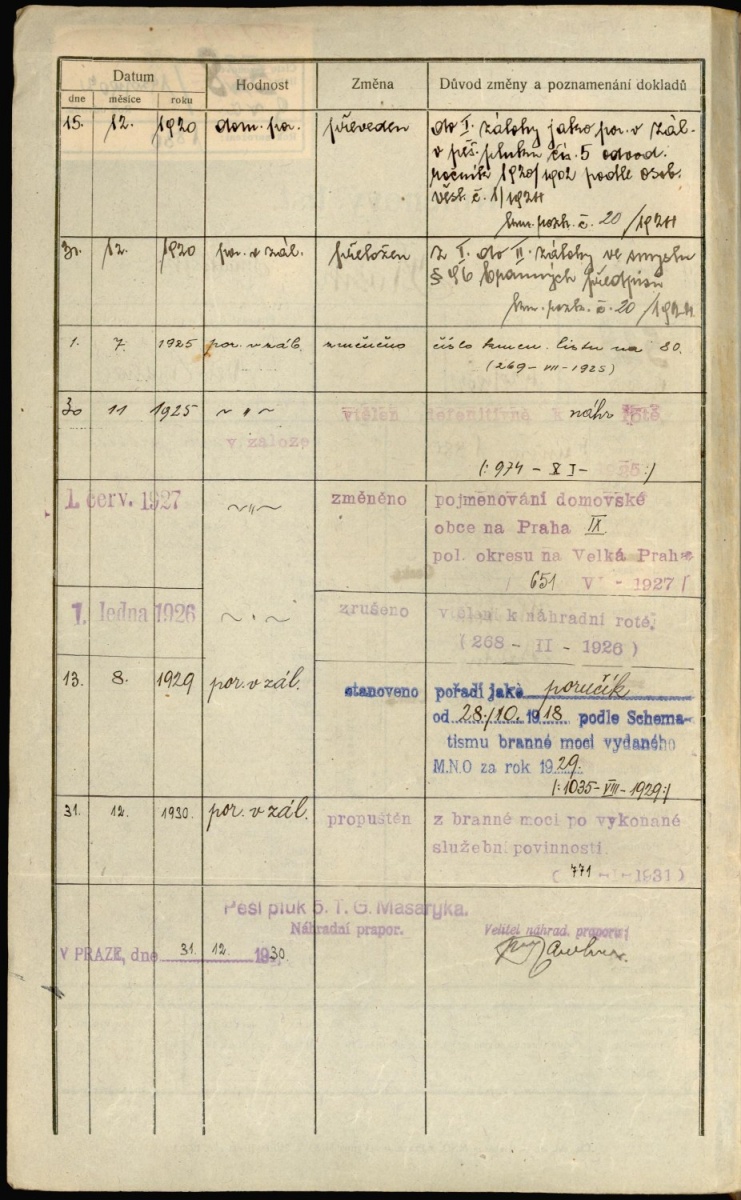 Datum
Hodnost
Změna
Důvod změny a poznamenání dokladů
dne měsíce roku
15. 12. 1920 dom. por. převeden do I. zálohy jako por. v zál.
v pěš. pluku čís. 5 odvod.
ročník 1920/1902 podle osob.
věst. č. 1/1921
km. rozk. č. 20/1921
31. 12. 1920 por. v zál. přeložen z I. do II. zálohy ve smyslu
§ 46 branných předpisů
km. rozk. č. 20/1921
1. 7. 1925 por. v záb. změněno číslo kmen. listu na 80.
(269-VII-1925)
30 11 1925 ~ " ~ vtělen definitivně k náhr rotě
v záloze
(: 974 - XI- 1925 :)
1. červ. 1927 ~ " ~ změněno pojmenování domovské
obce na Praha IX
pol. okresu na Velká Praha
/ 651 V - 1927 /
1. ledna 1926 ~ " ~ zrušeno vtělení k náhradní rotě.
(268 - II - 1926)
13. 8. 1929 por. v zál. stanoveno pořadí jako poručík
od 28./10. 1918 podle Schema-
tismu branné moci vydaného
M.N.O za rok 1929.
(:1035-VIII-1929:)
31. 12. 1930. por. v zál. propuštěn z branné moci po vykonané
služební povinnosti.
(771-I-1931)
Pěší pluk 5. T. G. Masaryka.
Náhradní prapor.
Velitel náhrad. praporu:
V PRAZE, dne 31. 12. 1930.